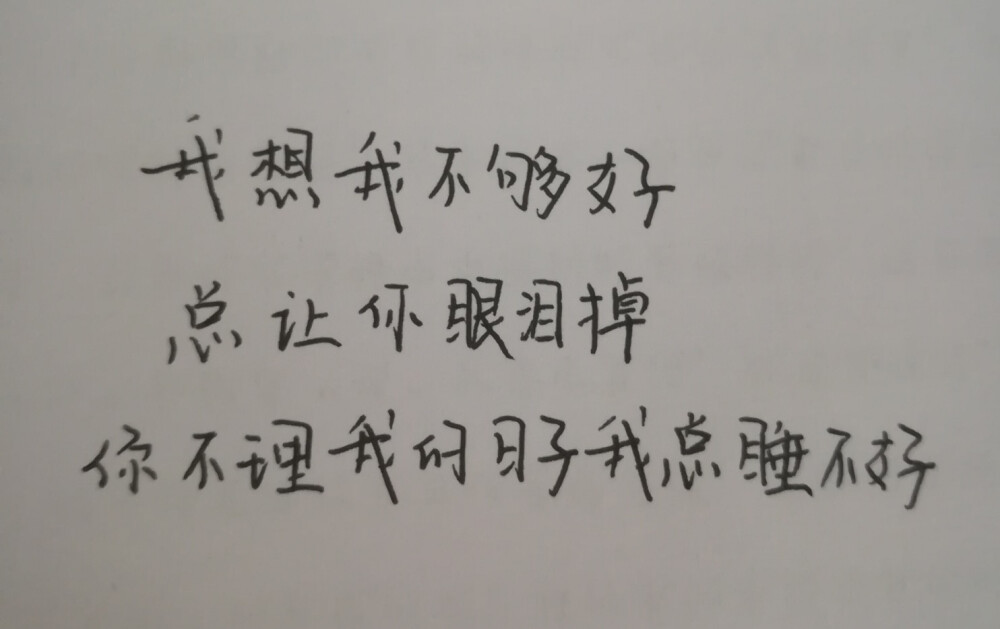 我想我不够好
总让你眼泪掉
你不理我的日子我总睡不好